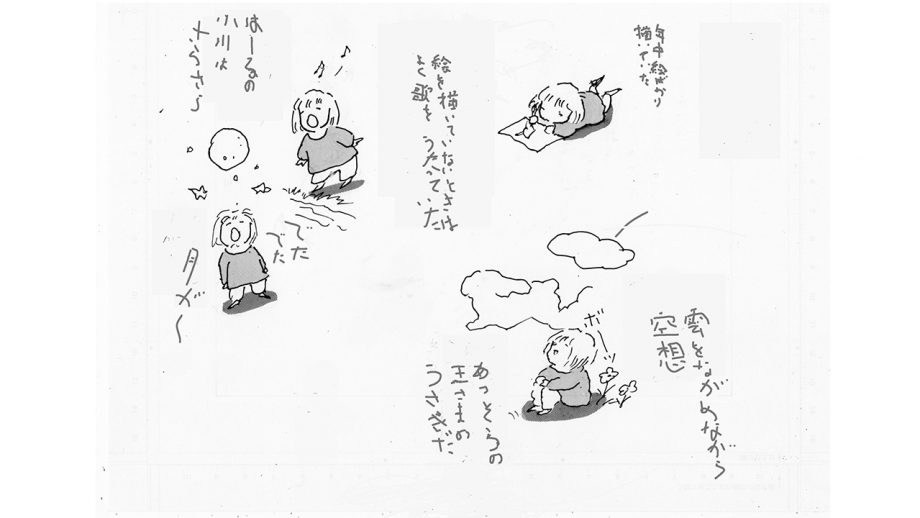 年中絵ばかり
描いていた
絵を描いていないときは
よく歌を うたっていた
はーるの
小川は
さらさら
でた
でた
月が〜
雲をながめながら
空想
ボー
あっ そらの
王さまの
うさぎだ